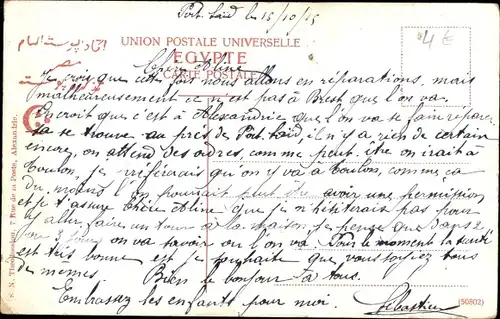 Port-Saïd le 15/10/15
4 €
UNION POSTALE UNIVERSELLE
EGYPTE
CARTE POSTALE
Chère Aline
Je crois que cette fois nous allons en réparations, mais
malheureusement ce n'est pas à Brest que l'on va.
On croit que c'est à Alexandrie que l'on va se faire réparer
sa se trouve au près de Port-Saïd, il n'y a rien de certain
encore, on attend des ordres, comme peut être on irait à
Toulon, je préférerais qu'on y va à Toulon, comme ça
du moins l'on pourrait peut être avoir une permission
et je t'assure Chère Aline que je n'hésiterais pas pour
y aller faire un tour à la maison, je pense que dans
2 ou 3 jours on va savoir ou l'on va. Pour le moment la santé
est très bonne et je souhaite que vous soyiez tous
de mêmes. Bien le bonjour à tous.
Embrassez les enfants pour moi. Sébastien
(50802)
7 Rue de la Poste, Alexandrie.